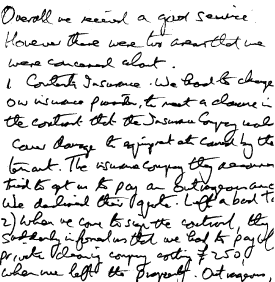 Overall we received a good service.
However there were two areas that we
were concerned about.
1 Contents Insurance. We had to change
our insurance provider, to meet a clause in
the contract that the Insurance Company would
cover damage to equipment caused by the
tenant. The insurance company they recommen
tried to get us to pay an outrageous amou
We declined their quote. Left a bad t
2) When we came to sign the contract, they
suddenly informed us that we had to pay a
private cleaning company costing £250,
when we left the property. Outrageous,